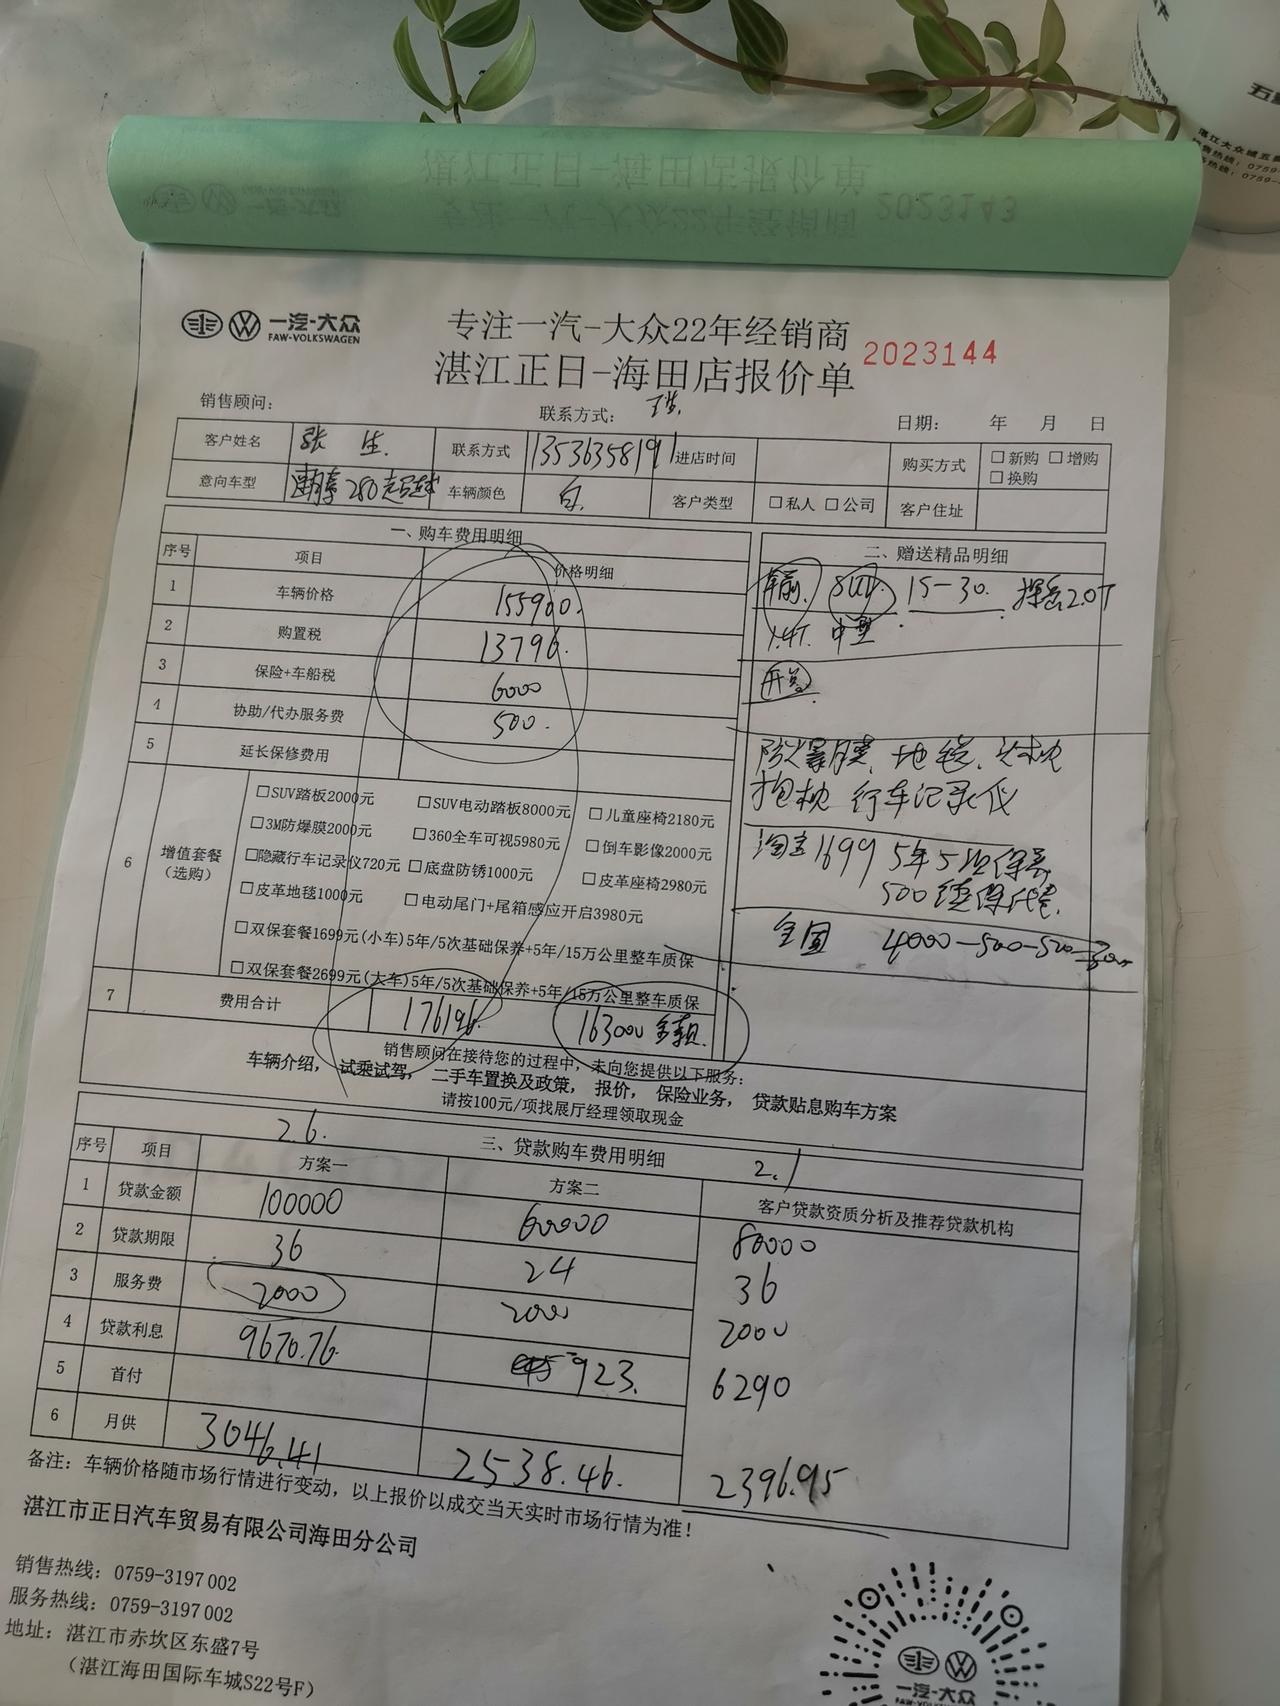 五
湛江大众城五
售热线:0759-
务热线:0759-
一汽-大众
FAW-VOLKSWAGEN
专注一汽-大众22年经销商
湛江正日-海田店报价单
2023143
一汽-大众
FAW-VOLKSWAGEN
专注一汽-大众22年经销商
湛江正日-海田店报价单 2023144
销售顾问: 联系方式: 日期: 年 月 日
客户姓名 张 生 联系方式 13536358191 进店时间 购买方式 □新购 □增购 □换购
意向车型 280 车辆颜色 白 客户类型 □私人 □公司 客户住址
一、购车费用明细
序号 项目 价格明细
1 车辆价格 155900.
2 购置税 13796.
3 保险+车船税 6000
4 协助/代办服务费 500.
5 延长保修费用
6 增值套餐(选购)
□SUV踏板2000元 □SUV电动踏板8000元 □儿童座椅2180元
□3M防爆膜2000元 □360全车可视5980元 □倒车影像2000元
□隐藏行车记录仪720元 □底盘防锈1000元 □皮革座椅2980元
□皮革地毯1000元 □电动尾门+尾箱感应开启3980元
□双保套餐1699元(小车)5年/5次基础保养+5年/15万公里整车质保
□双保套餐2699元(大车)5年/5次基础保养+5年/15万公里整车质保
7 费用合计 176196. 163000 全款.
二、赠送精品明细
SUV. 15-30. 探岳2.0T
1.4T. 中型
防爆膜、地毯、头枕
抱枕 行车记录仪
1699 5年5次保养
500
全国 4000-500-500=3000
销售顾问在接待您的过程中,未向您提供以下服务:
车辆介绍, 试乘试驾, 二手车置换及政策, 报价, 保险业务, 贷款贴息购车方案
请按100元/项找展厅经理领取现金
2.6. 三、贷款购车费用明细 2.1
序号 项目 方案一 方案二 客户贷款资质分析及推荐贷款机构
1 贷款金额 100000 60000 80000
2 贷款期限 36 24 36
3 服务费 2000 2000 2000
4 贷款利息 9670.76 923. 6290
5 首付
6 月供 3046.41 2538.46. 2396.95
备注:车辆价格随市场行情进行变动,以上报价以成交当天实时市场行情为准!
湛江市正日汽车贸易有限公司海田分公司
销售热线:0759-3197002
服务热线:0759-3197002
地址:湛江市赤坎区东盛7号
(湛江海田国际车城S22号F)
一汽-大众
FAW-VOLKSWAGEN